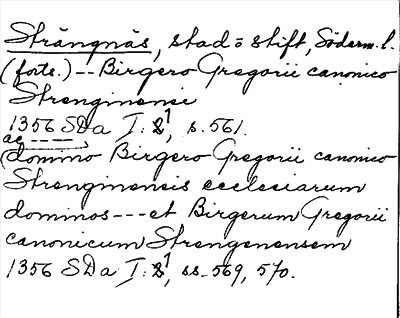 Strängnäs, stad o stift, Söderm. l.
(forts.) -- Birgero Gregorii canonico
Strenginensi
1356 SDa I: 2¹, s. 561.
ac ----
(domino Birgero Gregorii canonico
Strenginensis ecclesiarum
dominos --- et Birgerum Gregorii
canonicum Strengenensem
1356 SDa I: 2¹, ss. 569, 570.